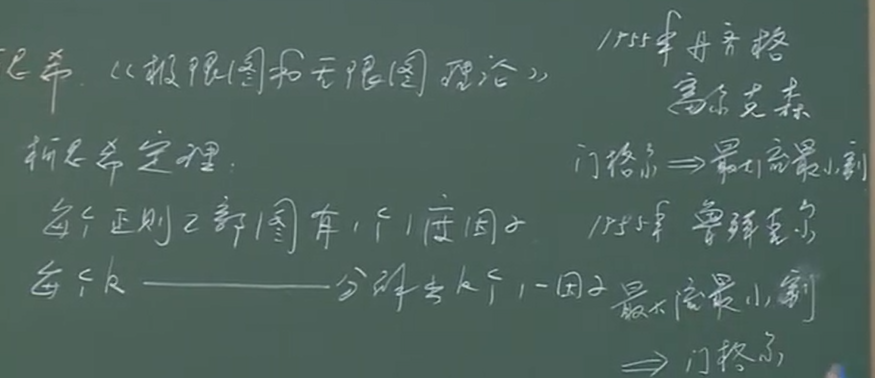 思希.《极限图和无限图理论》
柯思希定理.
每个正则2部图有1个1度因子
每个k ———— 分解为k个1-因子
1955年丹齐格
富尔克森
门格尔⇒最大流最小割
1955年鲁滨孙尔
最大流最小割
⇒门格尔